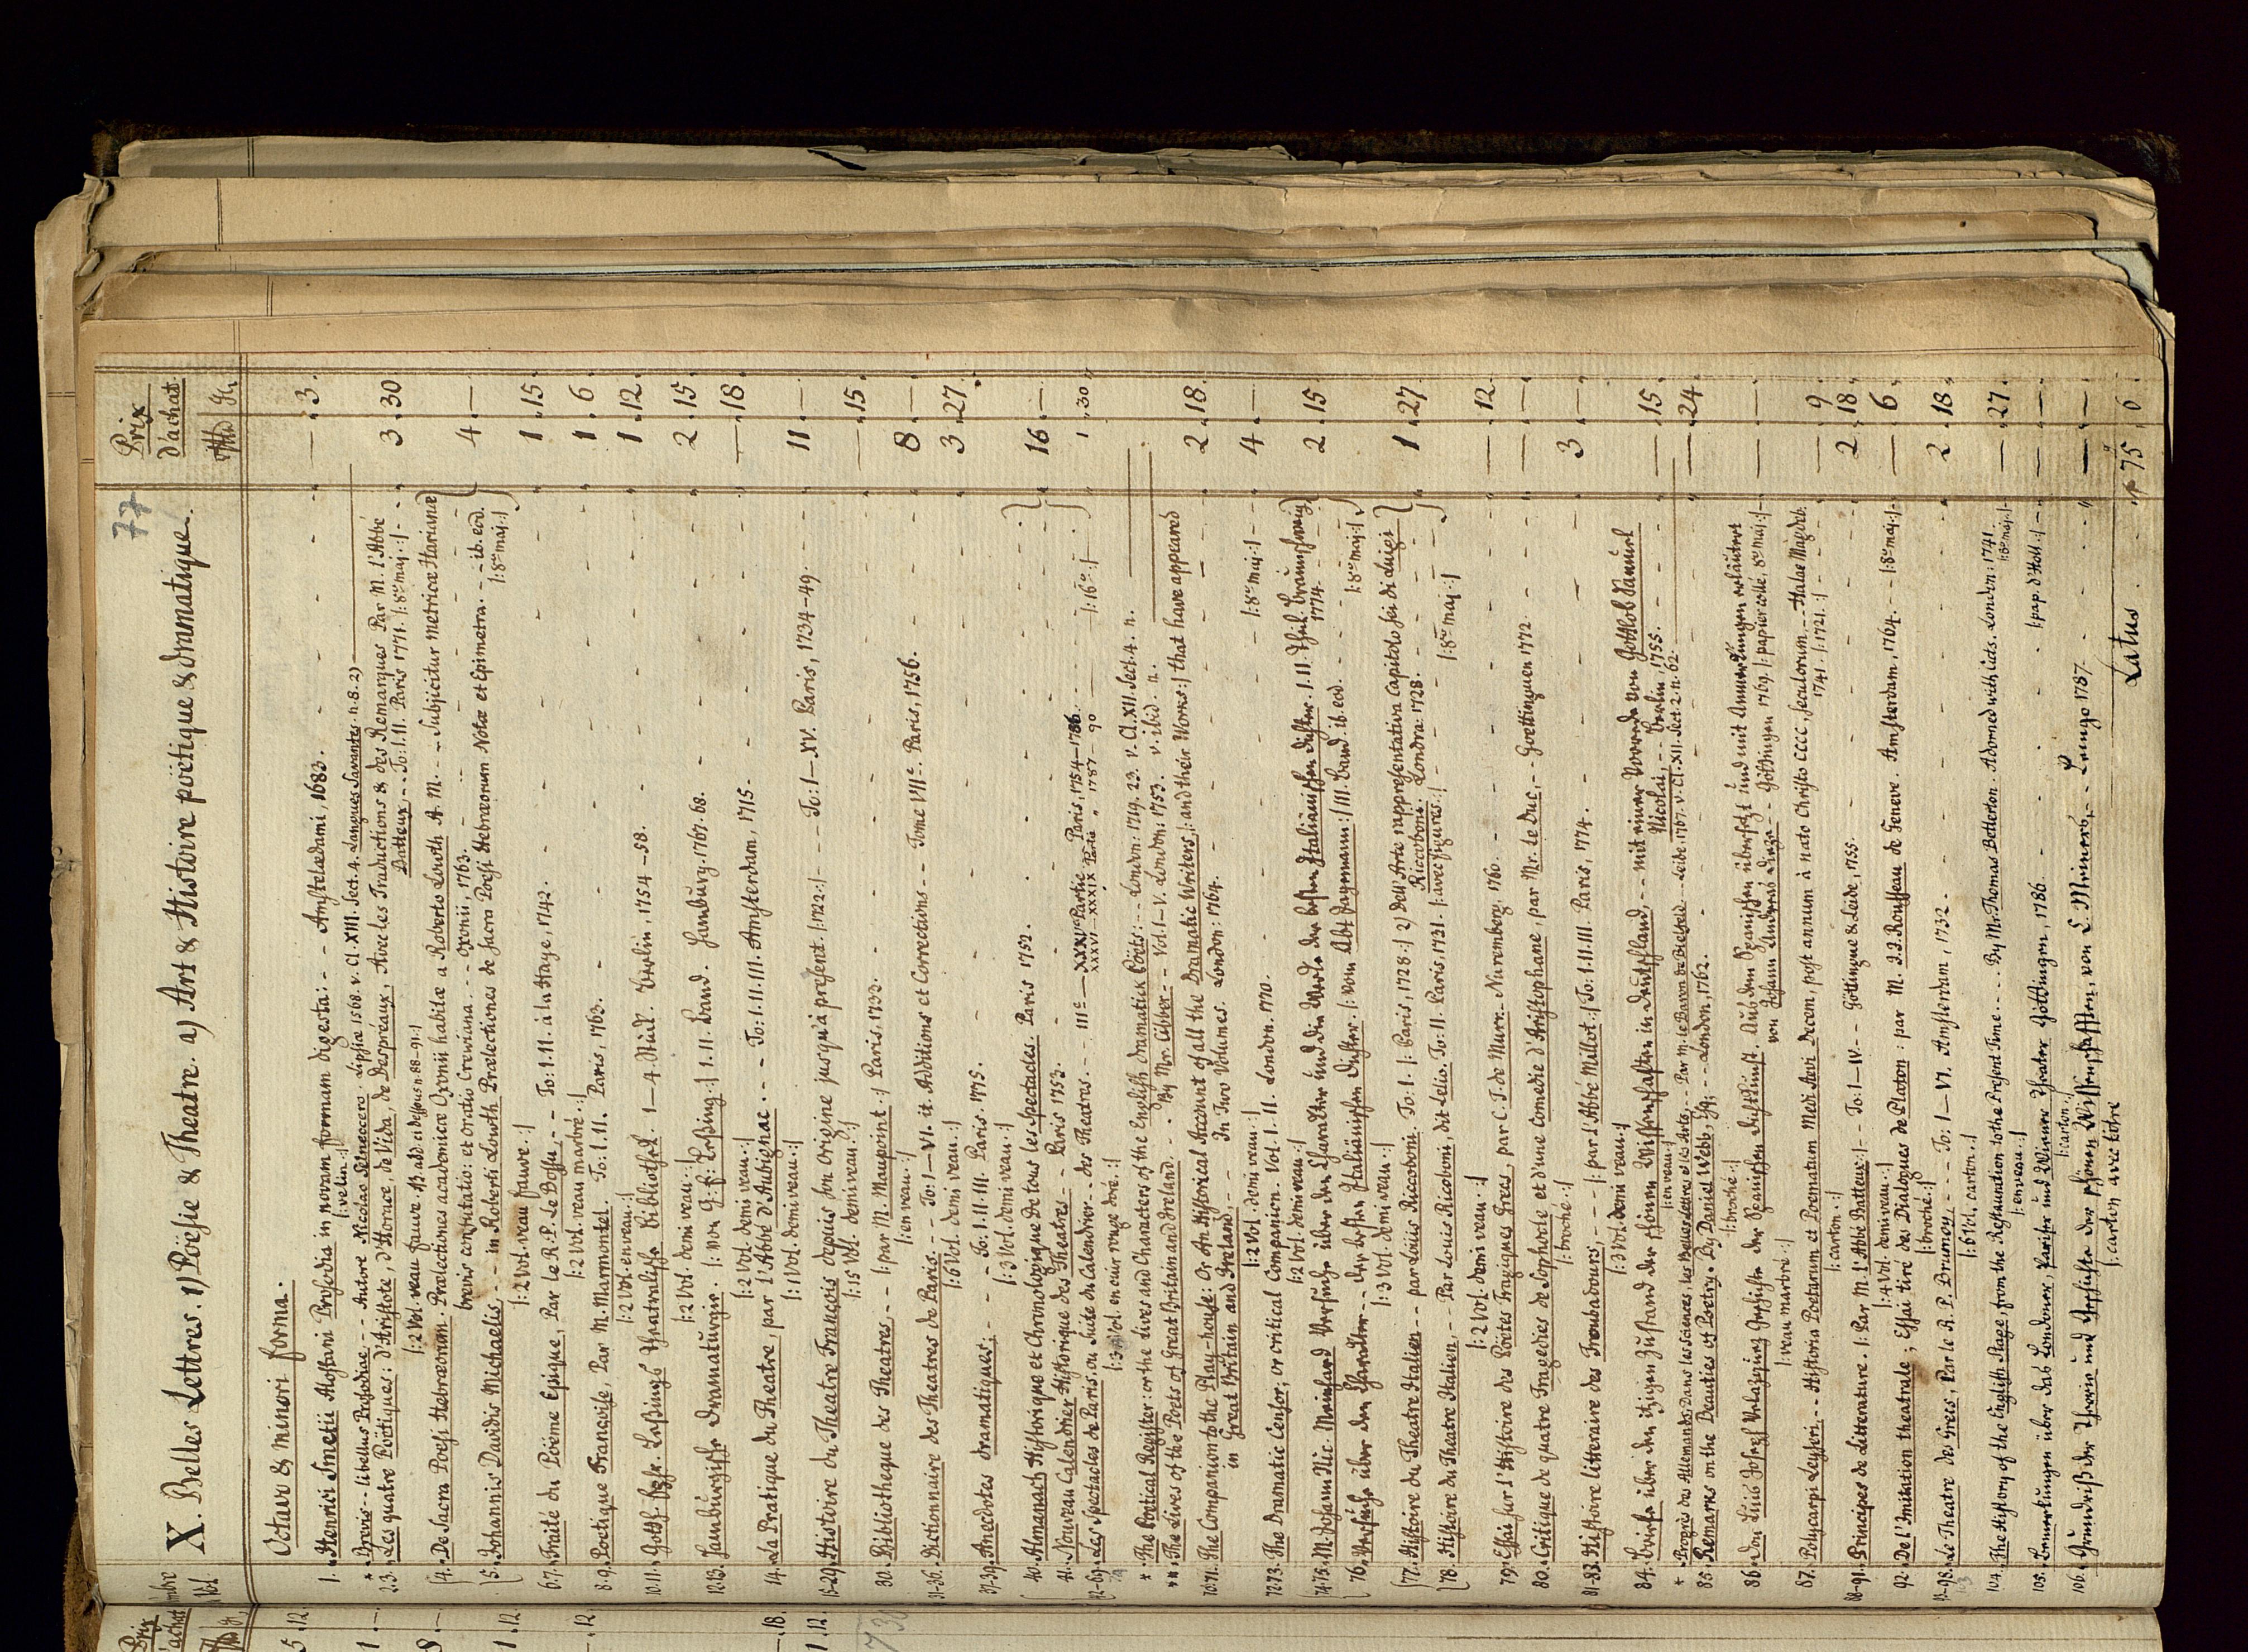 77
X. Belles Lettres. 1) Poësie & Theatre. a) Art & Histoire poëtique & dramatique.
Prix d'achat.
Octavo & minori forma.
1. Henrici Smetii Alostani Prosodia in novam formam digesta: - - Amstelædami, 1683. — 3.
|: velin :|
* Brevis - - libellus Prosodiae - - Autore Nicolao Selneccero. Lipsiae 1568. v. Cl. XIII. Sect. 4. Langues Savantes. n. 8. 2)
2.3. Les quatre Poëtiques: d'Aristote, d'Horace, de Vida, de Despréaux, Avec les Traductions & des Remarques Par M. l'Abbé
Batteux - - To: I. II. Paris 1771. |: 8vo maj. :| - - 3. 30.
|: 2 Vol. veau fauve. NB. add. ci dessous n. 88-91 :|
4. De Sacra Poesi Hebræorum. Prælectiones academicæ Oxonii habitæ a Roberto Lowth A. M. - - Subjicitur Metricæ Harianæ
brevis confutatio: et Oratio Crewiana. - - Oxonii, 1763. 4. —
5. Johannis Davidis Michaelis - - in Roberti Lowth Prælectiones de sacra Poesi Hebræorum Notæ et Epimetra. - - ib. eod.
|: 2 Vol. veau fauve :| |: 8vo maj. :|
6.7. Traité du Poëme Epique, Par le R. P. le Bossu - - To: I. II. à la Haye, 1742. 1. 15.
|: 2 Vol. veau marbré. :|
8.9. Poëtique Françoise, Par M. Marmontel. To: I. II. Paris, 1763. 1. 6
|: 2 Vol. en veau :|
10.11. Gotth. Ephr. Leßings Theatralische Bibliothek. 1-4. Stück. Berlin, 1754-58. 1. 12
|: 2 Vol. demi veau :|
12.13. Hamburgische Dramaturgie. |: von G. E. Leßing :| I. II. Band. Hamburg. 1767. 68. 2. 15
|: 2 Vol. demi veau :|
14. La Pratique du Theatre, par l'Abbé d'Aubignac - - To: I. II. III. Amsterdam, 1715. — 18
|: 1 Vol. demi veau :|
15-29. Histoire du Theatre François depuis son Origine jusqu'à present. |: 1722 :| - - To: I-XV. Paris, 1734-49. 11. —
|: 15 Vol. demi veau :|
30. Bibliotheque des Theatres. - - |: par M. Maupoint :| Paris, 1733. — 15
|: en veau :|
31-36. Dictionnaire des Theatres de Paris. - - To: I-VI. it. Additions et Corrections - - Tome VIIe. Paris, 1756. 8. —
|: 6 Vol. demi veau :|
37-39. Anecdotes dramatiques: - - To: I. II. III. Paris. 1775. 3. 27
|: 3 Vol. demi veau :|
40. Almanach Historique et Chronologique De tous les Spectacles. Paris 1752.
41. Nouveau Calendrier Historique des Theatres - - Paris 1753. 16. —
42-69. Les Spectacles de Paris. ou Suite du Calendrier - - des Theatres. - - IIIe-XXXVe Partie - Paris, 1754-1786. |: 16o :|
XXXVI-XXXIX Partie Paris 1787-90 1. 30
|: Vol. en cuir rouge doré. :|
* The Poetical Register: or the Lives and Characters of the English dramatick Poëts: - - London: 1719. 23. v. Cl. XII. Sect. 4. n.
** The Lives of the Poets of Great Britain and Ireland. - By Mr. Cibber - - Vol. I-V. London: 1753. v. ibid. n.
70.71. The Companion to the Play-house: Or An Historical Account of all the Dramatic Writers, |: and their Works :| that have appeared
in Great Britain and Ireland, - - In Two Volumes. London: 1764. 2. 18
|: 2 Vol. demi veau :|
72.73. The Dramatic Censor; or critical Companion. Vol. I. II. London. 1770. |: 8vo maj. :| 4. —
|: 2 Vol. demi veau :|
74.75. M. Johann Nic. Meinhard Versuche über den Charakter und die Werke der besten Italiänischen Dichter. I. II. Theil. Braunschweig
1774. 2. 15
76. Versuche über den Charakter - - der besten Italiänischen Dichter |: vom Abt Jagemann :| III. Band. ib. eod. |: 8vo maj. :|
|: 3 Vol. demi veau :|
77. Histoire du Theatre Italien - - par Louis Riccoboni. To: I. |: Paris, 1728 :| 2) Dell' Arte rappresentativa Capitoli sei di Luigi
Riccoboni. Londra: 1728. 1. 27
78. Histoire du Theatre Italien, - - Par Louis Ricoboni, dit Lelio. To: II. Paris, 1731. |: avec figures :| |: 8vo maj. :|
|: 2 Vol. demi veau :|
79. Essai sur l'Histoire des Poëtes Tragiques Grecs, par C. T. de Murr. Nuremberg. 1760. — 12
80. Critique de quatre Tragedies de Sophocle et d'une Comedie d'Aristophane, par Mr. Le Duc, - - Goettinguen 1772. — —
|: broché :|
81-83. Histoire litteraire des Troubadours, - - |: par l'Abbé Millot :| To: I. II. III. Paris, 1774. 3. —
|: 3 Vol. demi veau :|
84. Briefe über den itzigen Zustand der schönen Wissenschaften in Deutschland, - - mit einer Vorrede von Gotthold Samuel
Nicolai, - - Berlin, 1755. — 15
|: en veau :|
* Progrès des Allemands, Dans les Sciences, les Belles Lettres et les Arts, - - Par M. le Baron de Bielfeld - - Leide, 1767. v. Cl. XII. Sect. 2. n. 62.
85. Remarks on the Beauties of Poetry. By Daniel Webb, Esq. - - London, 1762. — 24
|: broché :|
86. Don Luis Joseph Velazquez Geschichte der Spanischen Dichtkunst. Aus dem Spanischen übersetzt und mit Anmerkungen erläutert
von Johann Andreas Dieze - - Göttingen 1769. |: papier collé, 8vo maj. :| — —
|: veau marbré :|
87. Polycarpi Leyseri. - - Historia Poetarum et Poematum Medii Aevi Decem, post annum à nato Christo CCCC, seculorum. - - Halae Magdeb.
1741. |: 1721. :| — 9
|: carton :|
88-91. Principes de Litterature. |: Par M. l'Abbé Batteux :| - - To: I-IV. - - Göttingue & Leide, 1755. 2. 18
|: 4 Vol. demi veau :|
92. De l'Imitation theatrale; Essai tiré des Dialogues de Platon: par M. J. J. Rousseau de Geneve. Amsterdam, 1764. - - |: 8vo maj. :| — 6
|: broché :|
93-98. Le Theatre des Grecs, Par le R. P. Brumoy, - - To: I-VI. Amsterdam, 1732. 2. 18
|: 6 Vol. carton :|
104. The History of the English Stage, from the Restauration to the Present Time - - By Mr. Thomas Betterton. Adorned with Cuts. London: 1741. |: 8vo maj. :| — 27
|: en veau :|
105. Bemerkungen über das Londoner, Pariser und Wiener Theater Göttingen, 1786. |: pap. d'Holl. :| — —
|: carton :|
106. Grundriß der Theorie und Geschichte der schönen Wissenschaften, von C. Meiners, - - Lemgo 1787. — —
|: carton avec titre
Latus 75 6